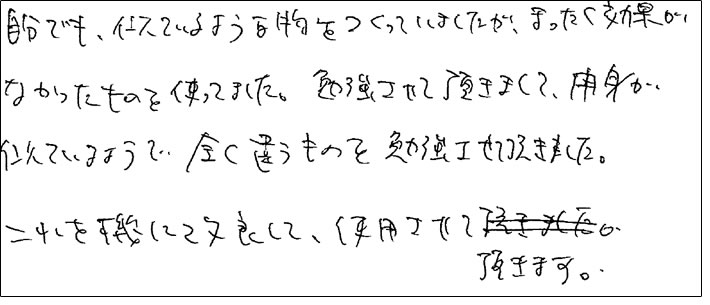 自分でも、似ているような物をつくっていましたが、まったく効果が
なかったものを使ってました。勉強させて頂きまして、中身が
似ているようで全く違うものを勉強させて頂きました。
これを機にこて又良くして、使用させて頂きました。
頂きます。